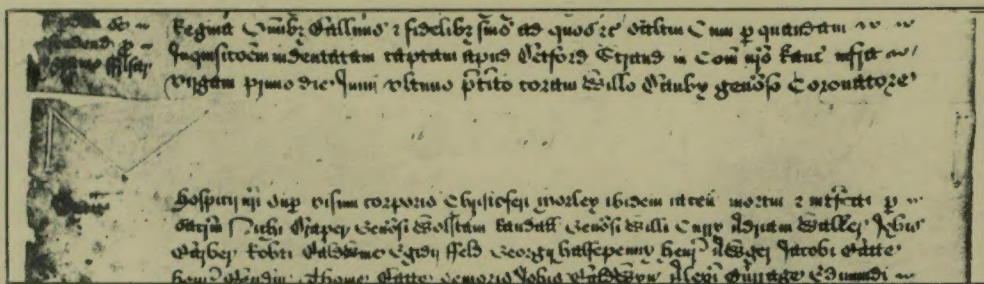 Regina Omībz Ballivis & fidelibz suis ad quos &c salutm Cum p quandam
pardon p Inquisicōem indentatam captam apud Detford Strand in Com nro Kanc infra
ffrisar virgam primo die Junii ultimo p̄tito coram Willo Danby genoso Coronatore
hospitii nri sup visum corporis Christoferi Morley ibidem iacen mortui & intfecti p
sacrm Nichi Draper Genosi Wolstani Randall Genosi Willi Curry Adriani Walker Johis
Barber Robti Baldwine Egidii ffeld Georgii halfepenny Henr Awger Jacobi Batte
Henr Bendin Thome Batte senioris Johis Baldwyn Alexi Burrage Edmundi